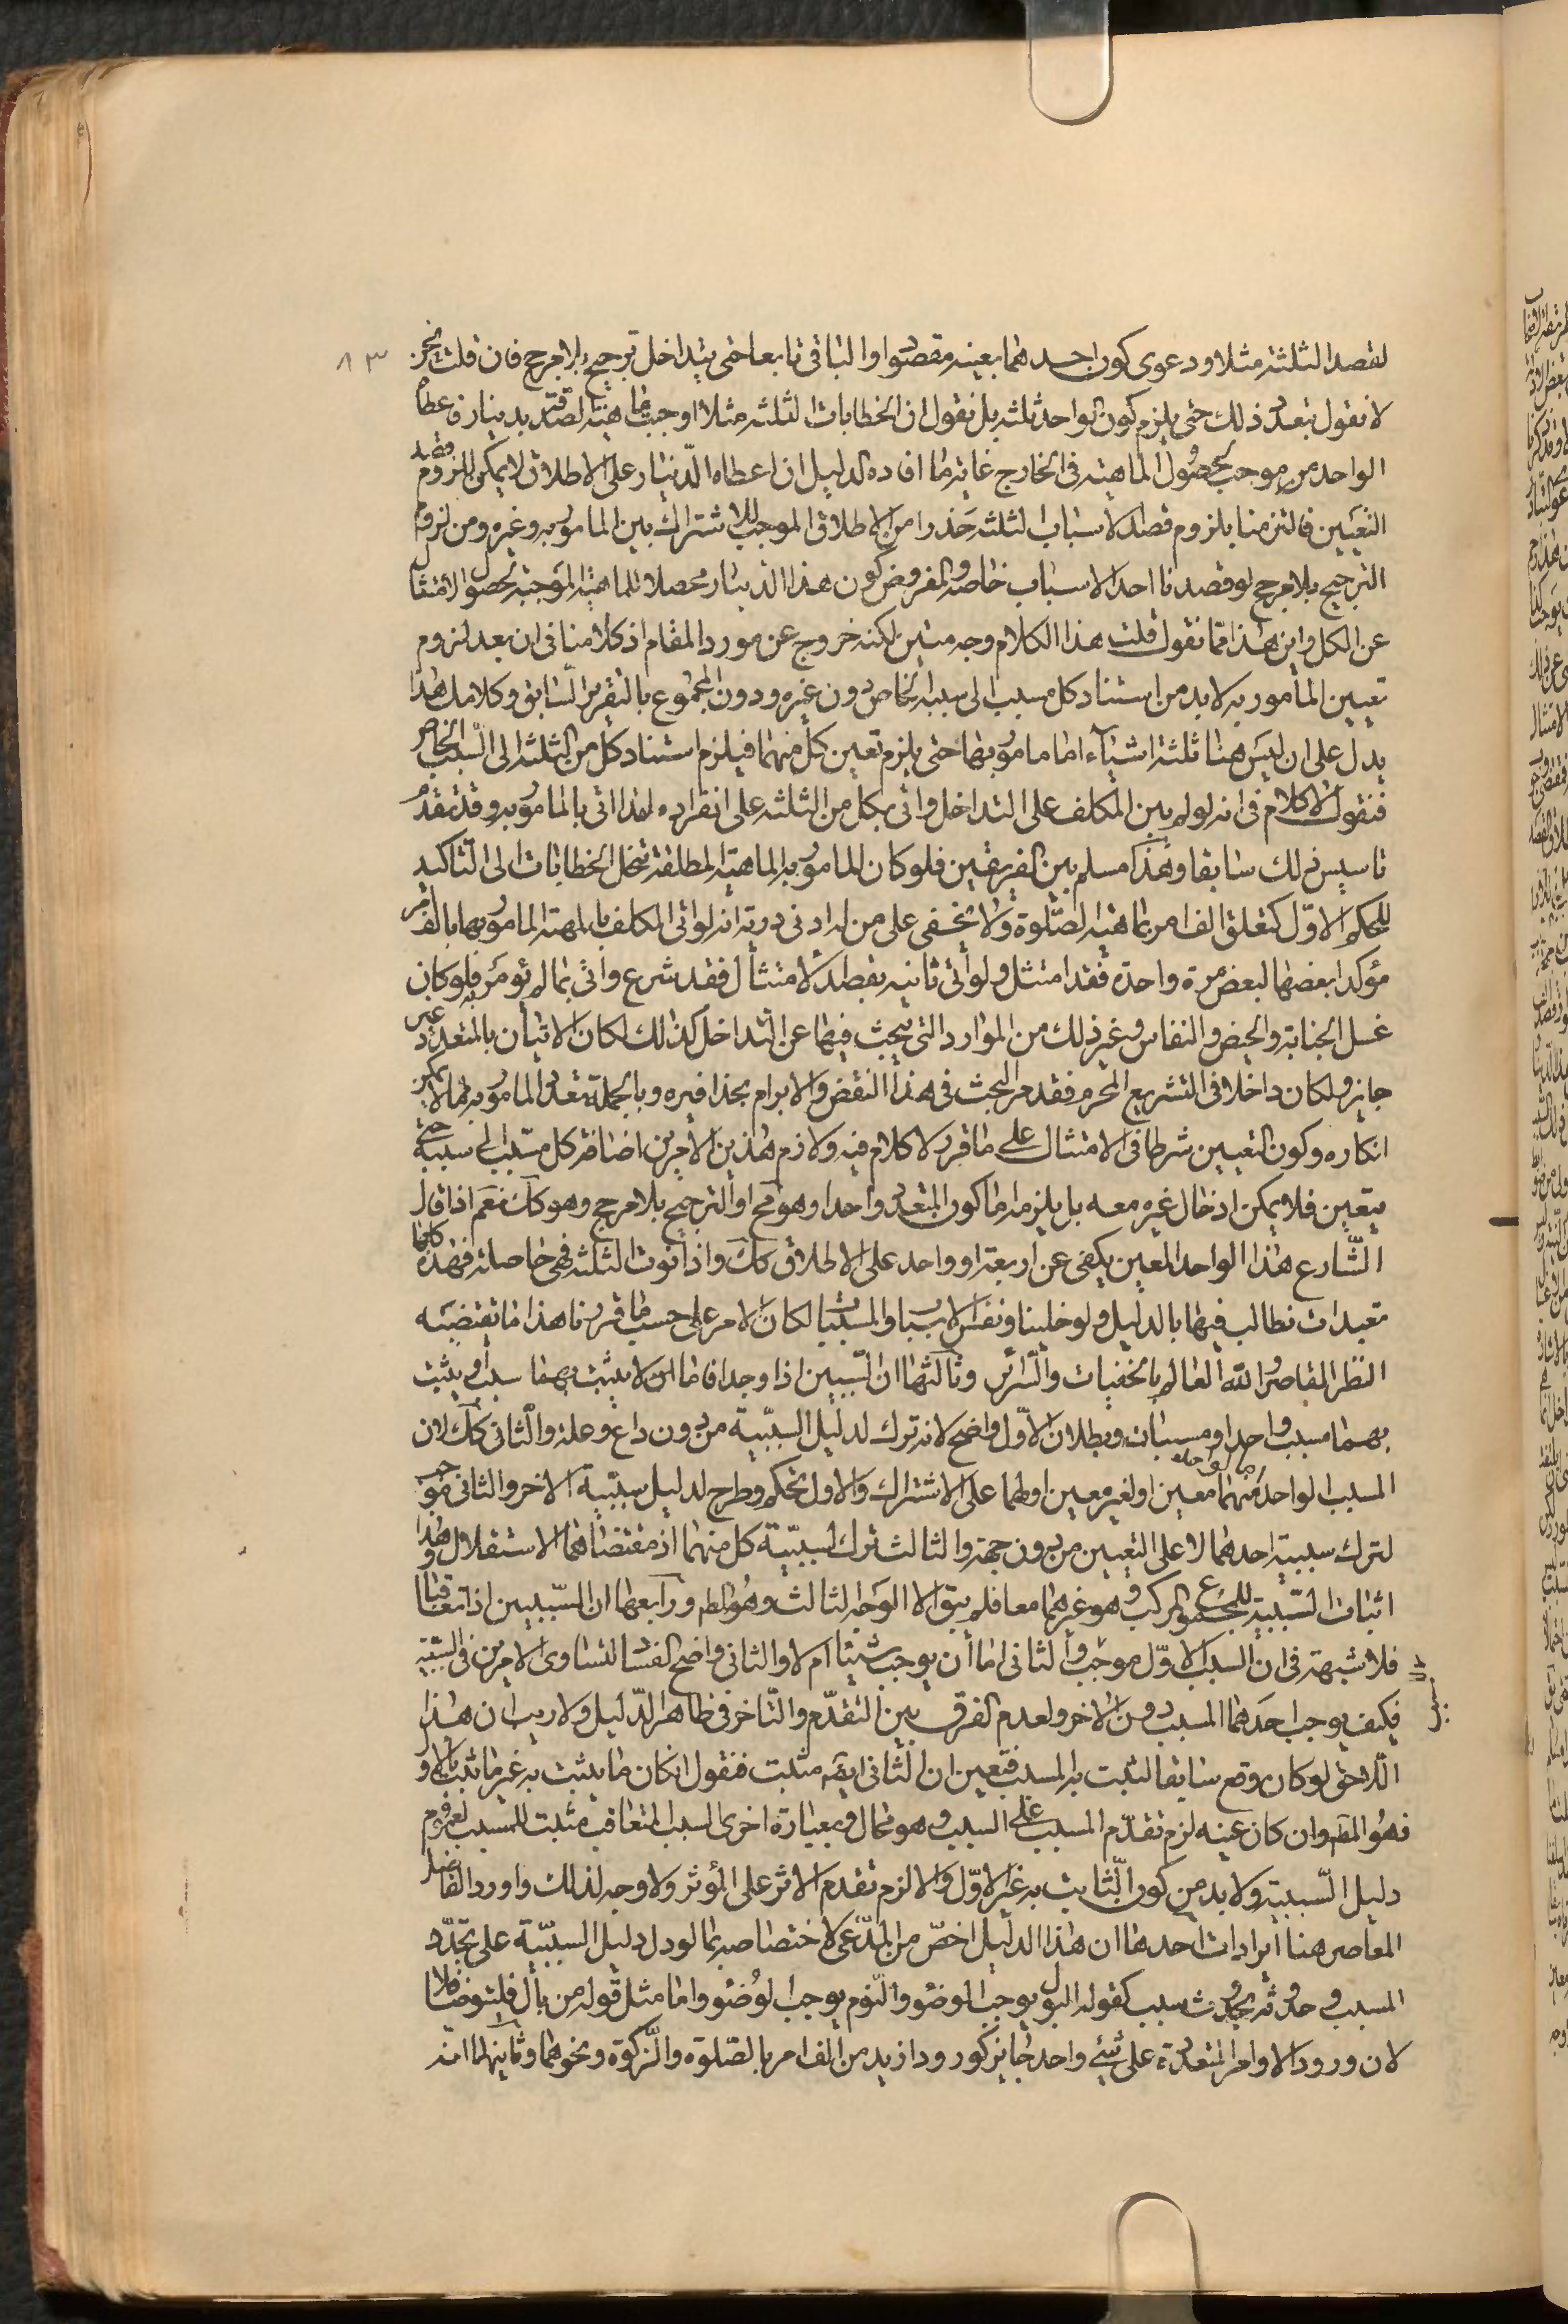 لقصد الثلثة مثلا ودعوى كون احدهما بعينه مقصودا والباقى تابعا حتى يتداخل ترجيح بلا مرجح فان قلت نحن
٨٣
لا نقول بتعدد ذلك حتى يلزم كون الواحد ثلثه بل نقول ان الخطابات الثلثه مثلا اوجبت ماهية الصدقة بدينار فاعطاء
الواحد من موجب لحصول الماهية فى الخارج غاية ما افاده الدليل ان اعطاه الدينار على الاطلاق لا يمكن للزوم قصد
التعيين فالتزمنا بلزوم قصد الاسباب الثلثه حذرا من الاطلاق الموجب للاشتراك بين المامور به وغيره ومن لزوم
الترجيح بلا مرجح لو قصدنا احد الاسباب خاصه والمفروض كون هذا الدينار محصلا للماهية الموجبة لحصول الامتثال
عن الكل واين هذا مما نقول قلت هذا الكلام وجه متين لكنه خروج عن مورد المقام اذ كلامنا فى ان بعد لزوم
تعيين المأمور به لا بد من استناد كل مسبب الى سببه الخاص دون غيره ودون المجموع بالتقرير السابق وكلامك هذا
يدل على ان ليس هنا ثلثة اشياء اما مامور بها حتى يلزم تعيين كل منهما فيلزم استناد كل من الثلثه الى السبب الخاص
فنقول لا كلام فى انه لو لم يبن المكلف على التداخل واتى بكل من الثلثه على انفراده لهذا اتى بالمامور به وقد تقدم
تاسيس ذلك سابقا وهذا مسلم بين الفريقين فلو كان المامور به الماهية المطلقة تنحل الخطابات الى التاكيد
للحكم الاول كتعلق الف امر بماهية الصلوة ولا يخفى على من له ادنى دربة انه لو اتى المكلف بالماهية المامور بها بالف امر
مؤكدا بعضها لبعض مرة واحدة فقد امتثل ولو اتى ثانيه بقصد الامتثال فقد شرع واتى بما لم يؤمر به فلو كان
غسل الجنابة والحيض والنفاس وغير ذلك من الموارد التى يبحث فيها عن التداخل كذلك لكان الاتيان بالمتعدد غير
جايز ولكان داخلا فى التشريع المحرم فقد مر البحث فى هذا النقض والابرام بحذافيره وبالجملة تعدد المامور به مما لا يمكن
انكاره وكون التعيين شرطا فى الامتثال على ما قرر لا كلام فيه ولازم هذين الامرين اضافة كل مسبب الى سببه حتى
يتعين فلا يمكن ادخال غيره معه بل يلزمه اما كون المتعدد واحدا وهو مح او الترجيح بلا مرجح وهو كك نعم اذا قال
الشارع هذا الواحد المعين يكفى عن اربعة او واحد على الاطلاق كك واذا نوت الثلثه فهى حاصلة فهذه كلها
تعبدات نطالب فيها بالدليل ولو خلينا ونفس الاسباب والمسببات لكان الامر على حسب ما قررنا هذا ما تقتضيه
النظر القاصر والله العالم بالخفيات والسرائر وثالثها ان السببين اذا وجدا فاما ان لا يثبت بهما سبب او يثبت
بهما مسبب واحد او مسببات وبطلان الاول واضح لانه ترك لدليل السببية من دون داع وعلة والثانى كك لان
المسبب الواحد منهما معين او لغير معين او لهما على الاشتراك والاول تحكم وطرح لدليل سببية الاخر والثانى موجب
لترك سببية احدهما لا على التعيين من دون جهة والثالث ترك لسببية كل منهما اذ مقتضاهما الاستقلال وهذا
اثبات السببية للمجموع المركب وهو غيرهما معا فلم يبق الا الوجه الثالث وهو المط ورابعها ان السببين اذا تعاقبا
فلا شبهة فى ان السبب الاول موجب والثانى اما ان يوجب شيئا ام لا والثانى واضح الفساد لتساوى الامرين فى السببية
فكيف يوجب احدهما المسبب دون الاخر ولعدم الفرق بين التقدم والتاخر فى ظاهر الدليل ولا ريب ان هذا
اللاحق لو كان وقع سابقا لثبت به المسبب فتعين ان الثانى ايضا مثبت فنقول ان كان ما يثبت به غير ما يثبت بالاول
فهو المط وان كان عينه لزم تقدم المسبب على السبب وهو محال وبعبارة اخرى السبب المتعاقب مثبت للمسبب لعموم
دليل السببية ولا بد من كون الثابت به غير الاول والا لزم تقدم الاثر على المؤثر ولا وجه لذلك واورد الفاضل
المعاصر هنا ايرادات احدها ان هذا الدليل اخص من المدعى لاختصاصه بما لو دل دليل السببية على تجدد
المسبب وحدوثه بحدوث سبب كقوله البول يوجب الوضوء والنوم يوجب الوضوء واما مثل قوله من بال فليتوضأ فلا
لان ورود الاوامر المتعددة على شيئ واحد جايز كورود ازيد من الف امر بالصلوة والزكوة ونحوهما وثانيهما انه